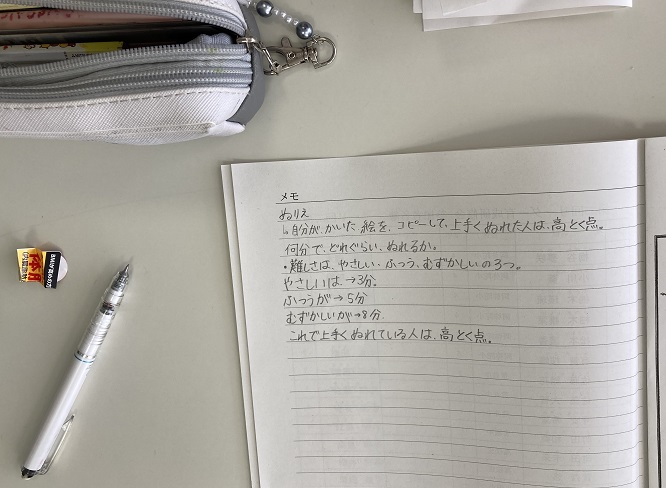 メモ
ぬりえ
↳自分が、かいた、絵を、コピーして、上手くぬれた人は、高とく点。
何分で、どれぐらい、ぬれるか。
・難しさは、やさしい、ふつう、むずかしいの3つ。
やさしいは、→3分。
ふつうが→5分
むずかしいが→8分
これで上手くぬれている人は、高とく点。